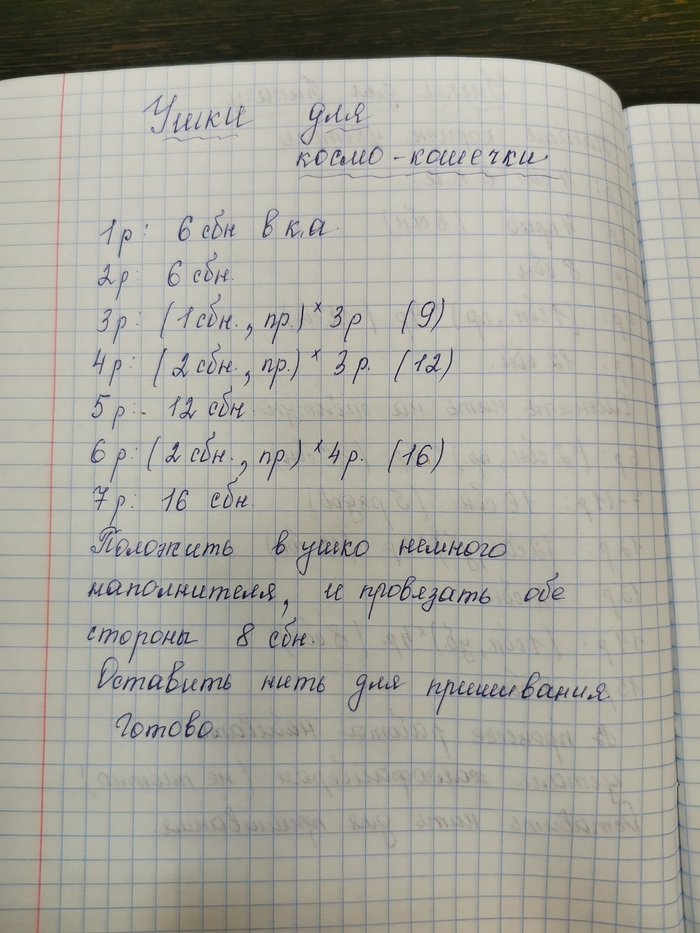 Ушки для
космо-кошечки
1р: 6 сбн в к.а
2р: 6 сбн.
3р: (1 сбн., пр.) × 3р (9)
4р: (2 сбн., пр.) × 3р. (12)
5р: 12 сбн.
6р: (2 сбн., пр.) × 4р. (16)
7р: 16 сбн.
Положить в ушко немного
наполнителя, и провязать обе
стороны 8 сбн.
Оставить нить для пришивания.
Готово.